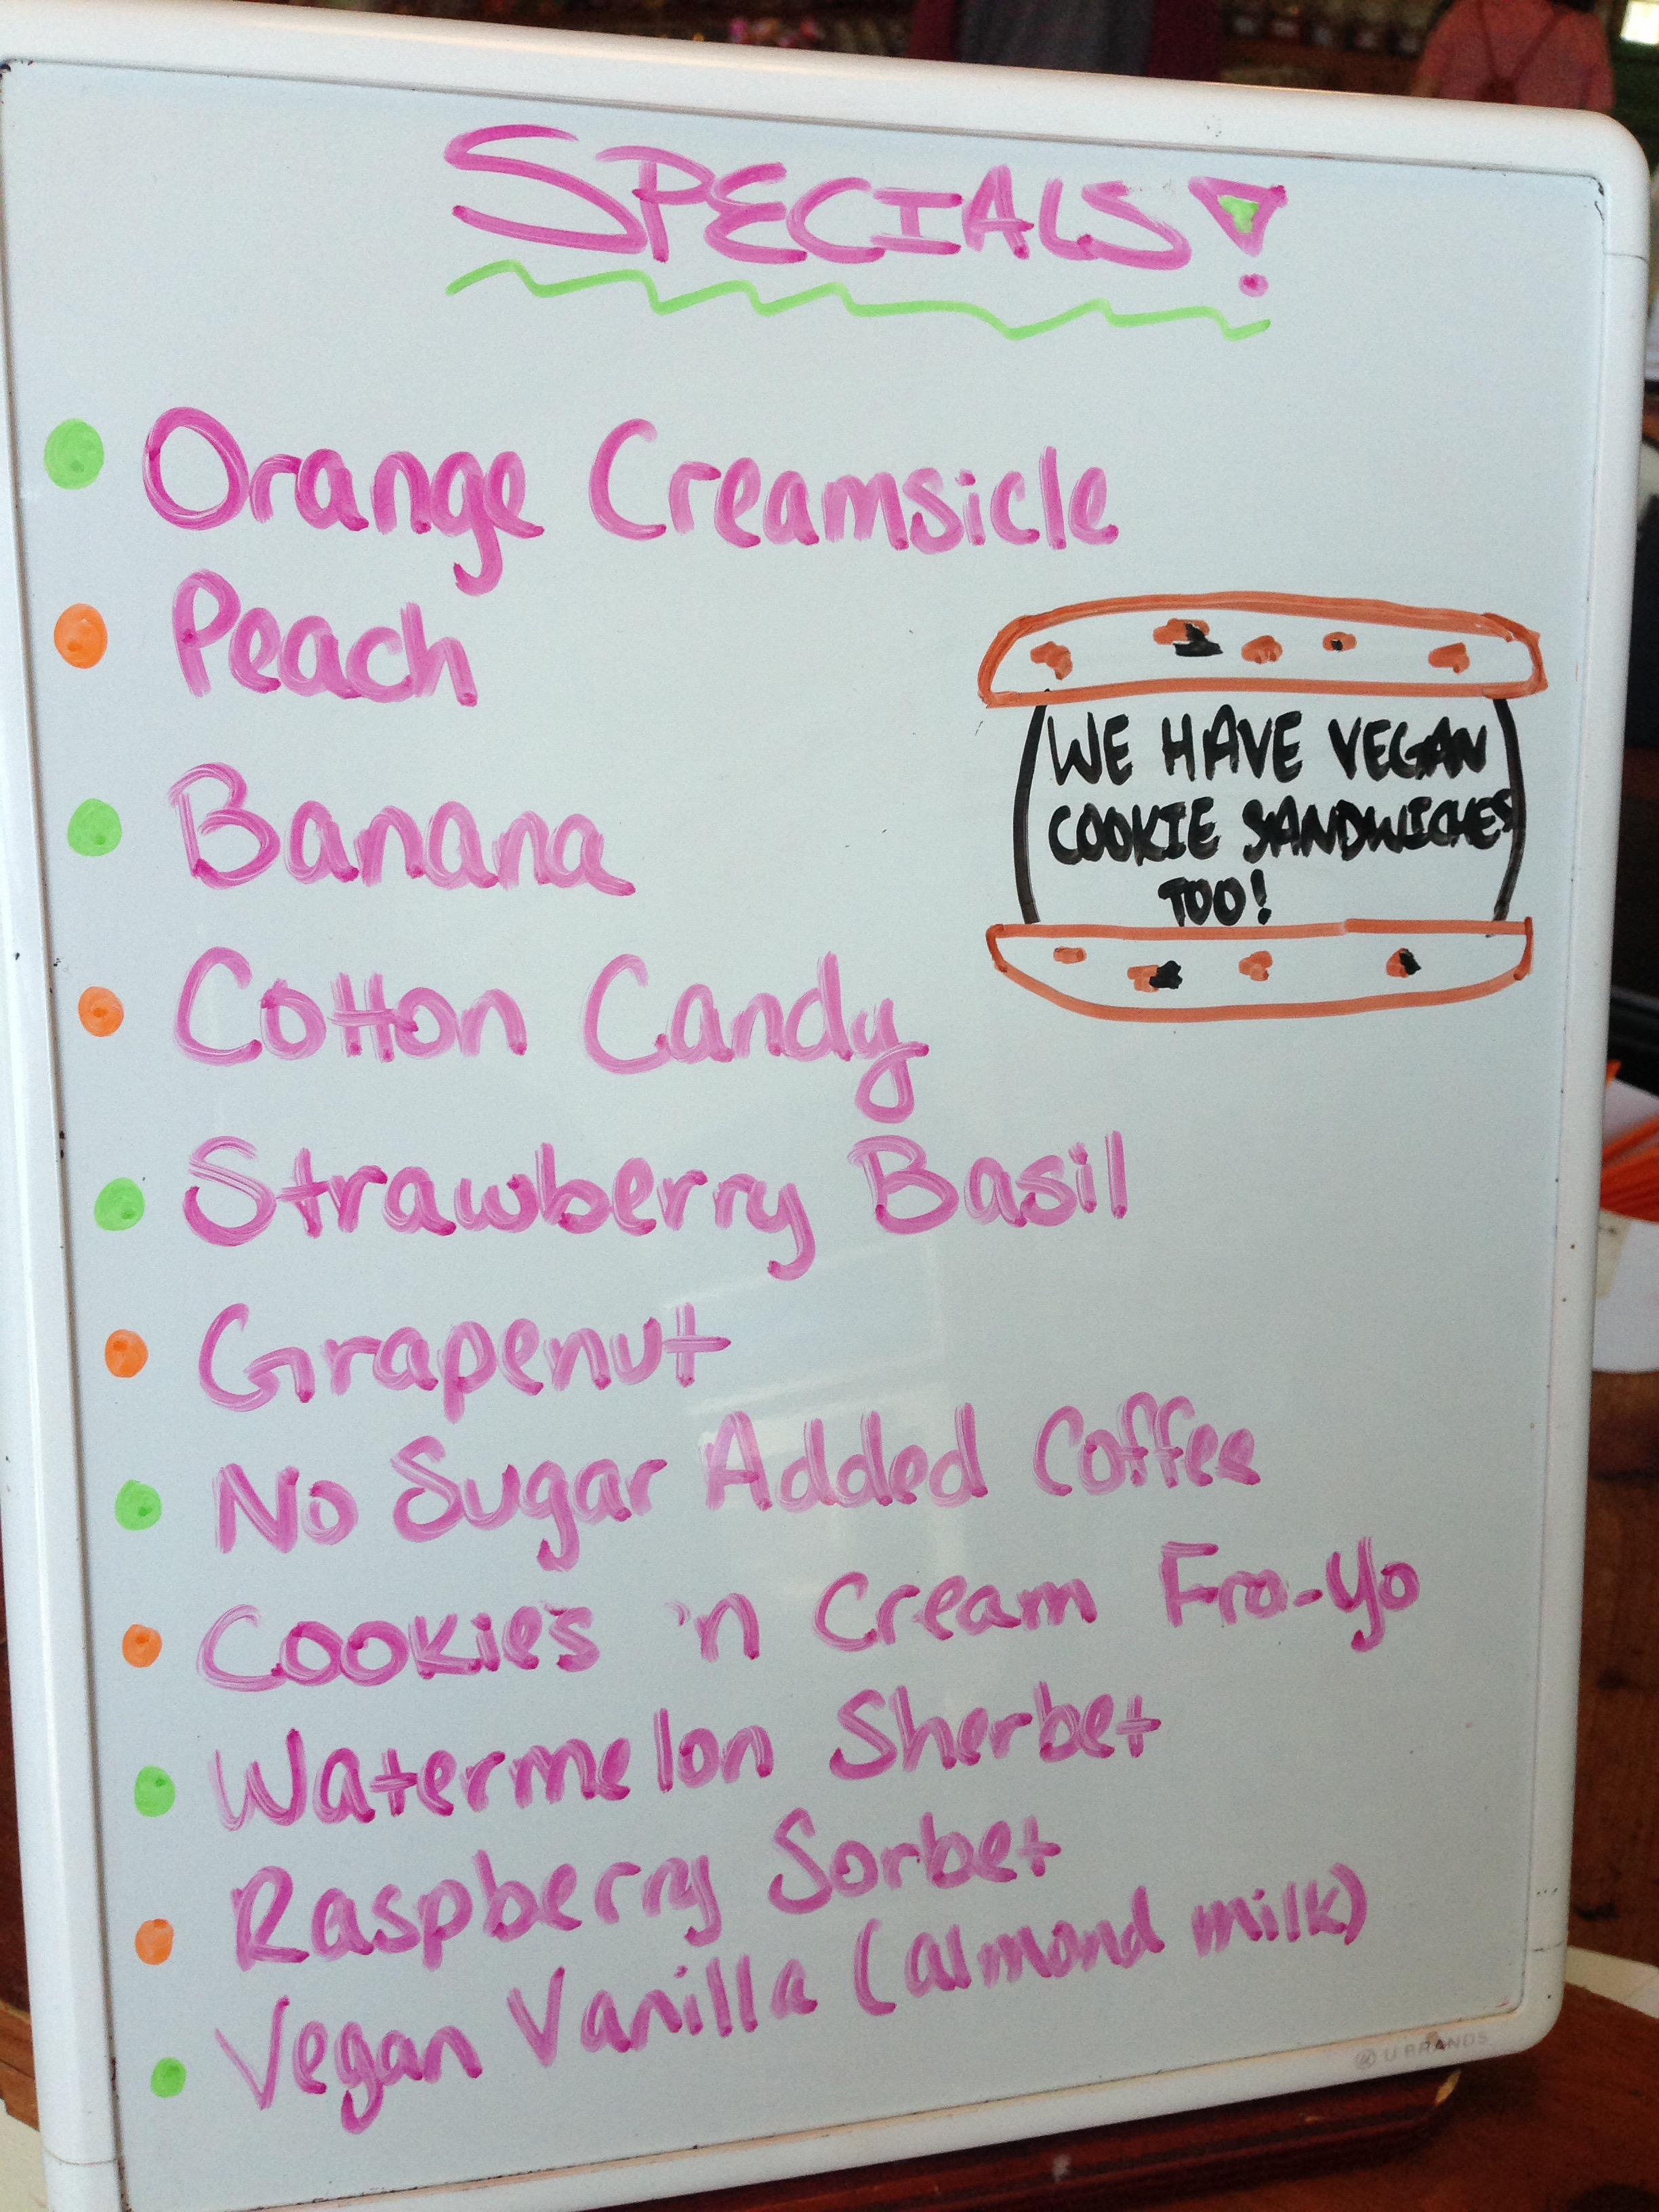 SPECIALS!
Orange Creamsicle
Peach
Banana
Cotton Candy
Strawberry Basil
Grapenut
No Sugar Added Coffee
Cookies 'n Cream Fro-Yo
Watermelon Sherbet
Raspberry Sorbet
Vegan Vanilla (almond milk)
WE HAVE VEGAN
COOKIE SANDWICHES
TOO!
U BRANDS